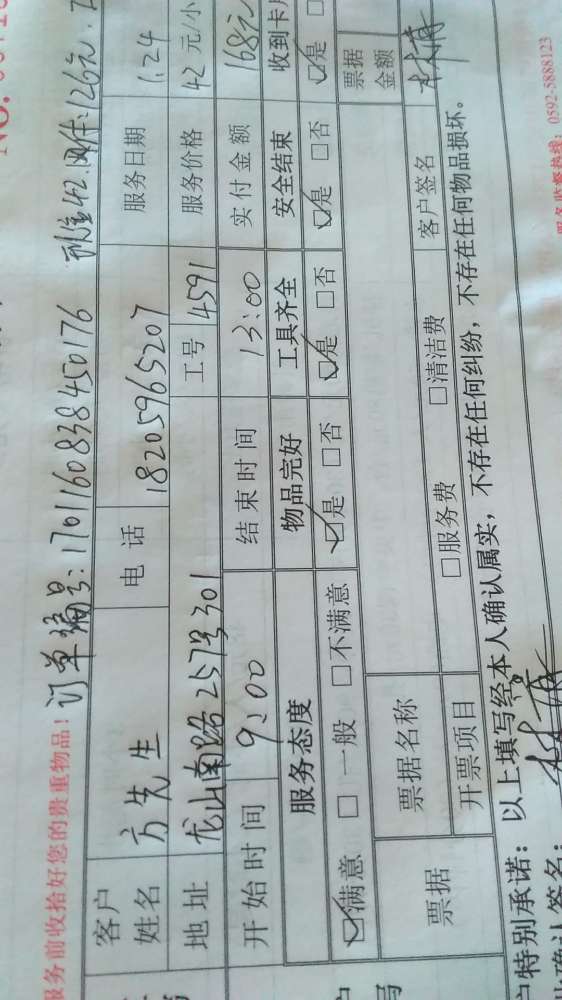 NO.
服务前收拾好您的贵重物品！
订单编号：1701160838450176 现金42.附件：126元.
客户姓名 方先生 电话 18205965207 服务日期 1.24
地址 龙山南路257号301 工号 4591 服务价格 42元/小
开始时间 9：00 结束时间 13：00 实付金额 168元
服务态度 物品完好 工具齐全 安全结束 收到卡
☑满意 □一般 □不满意 ☑是 □否 ☑是 □否 ☑是 □否 ☑是 □
票据 票据名称 票据金额
开票项目 □服务费 □清洁费 客户签名
户特别承诺：以上填写经本人确认属实，不存在任何纠纷，不存在任何物品损坏。
确认签名：
服务监督热线：0592-5888123